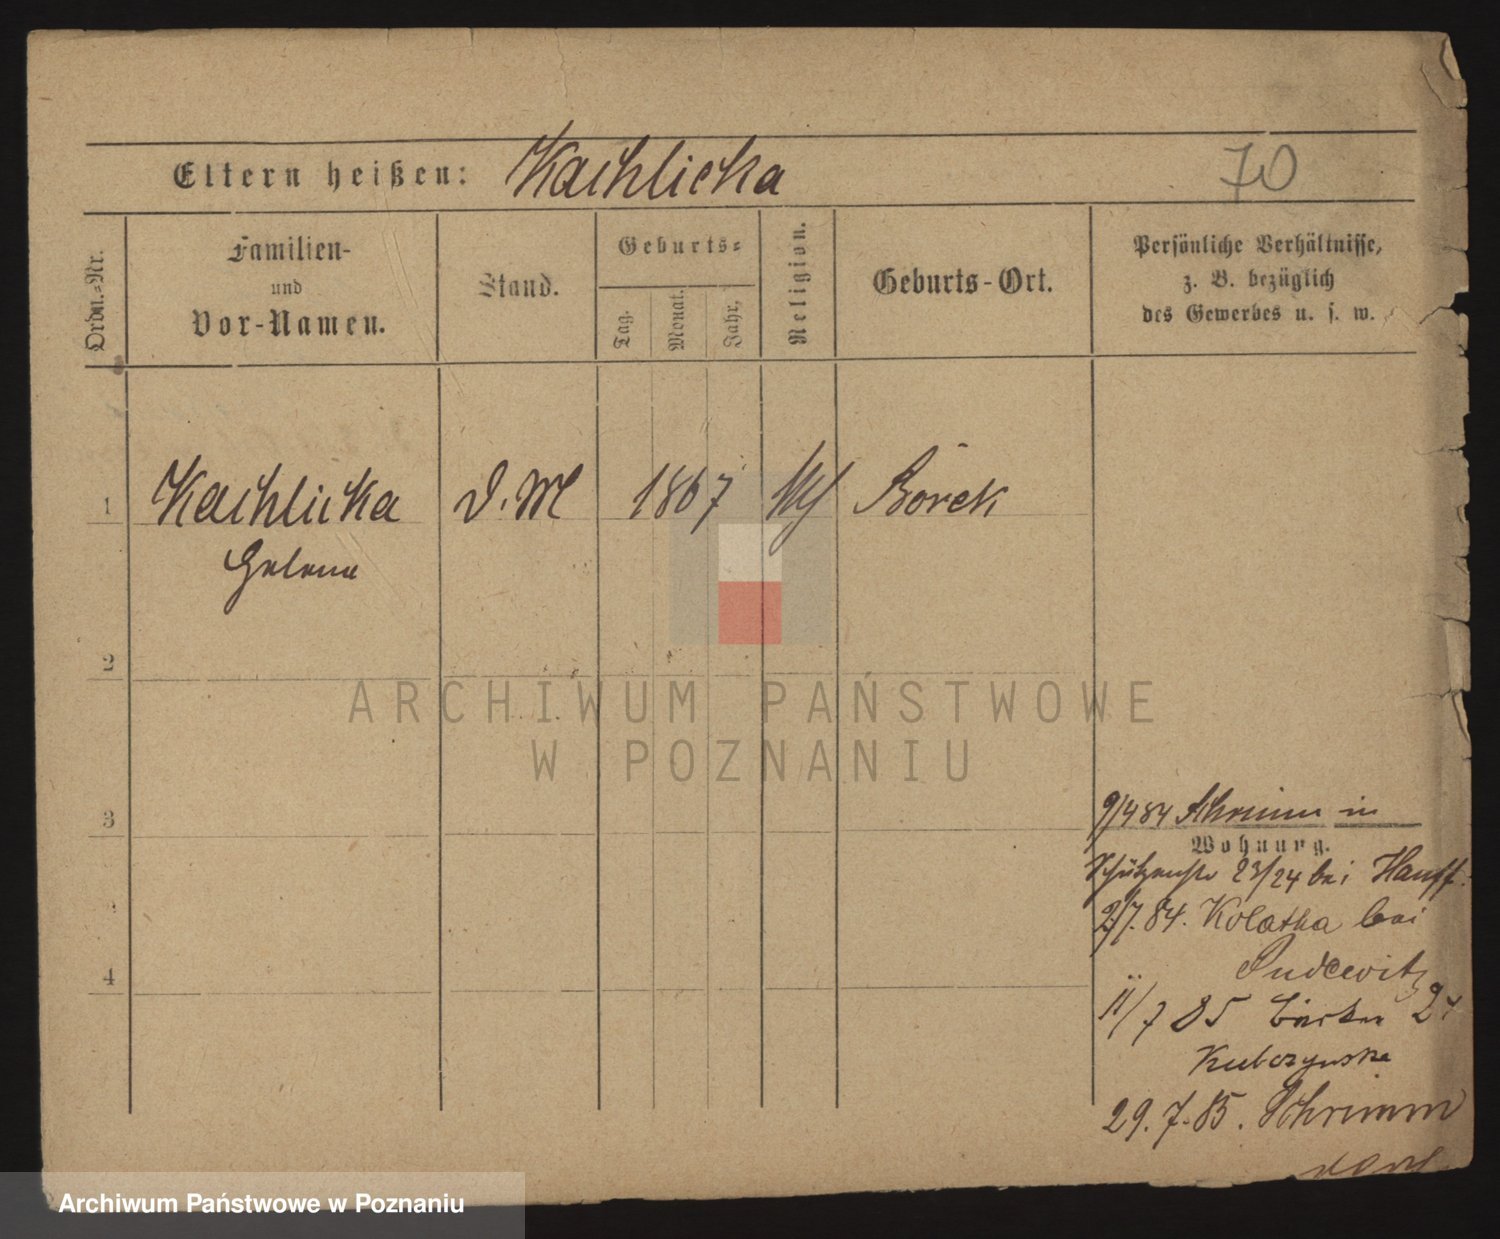 Eltern heißen: Kachlicka 70
Ordn.-Nr.
Familien-
und
Vor-Namen.
Stand.
Geburts-
Tag.
Monat.
Jahr.
Religion.
Geburts-Ort.
Persönliche Verhältnisse,
z. B. bezüglich
des Gewerbes u. s. w.
1 Kachlicka D. M 1867 Borek
Helena
2
ARCHIWUM PAŃSTWOWE
W POZNANIU
3
9/4 84 Schrimm in
Wohnung.
Schützenstr 23/24 bei Hauff.
2/7. 84. Kolatka bei
Pudewitz
4
11/7 85 24
Kubczynska
29. 7. 85. Schrimm
Archiwum Państwowe w Poznaniu